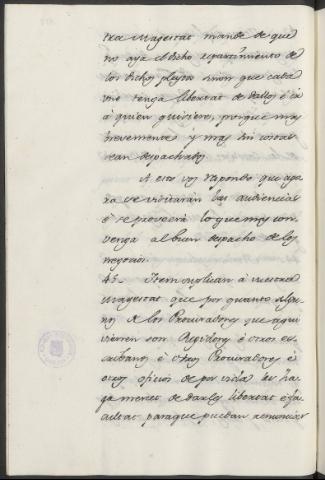 tra Magestat mande de que
no aya el dicho repartimiento de
los dichos pleytos sinon que cada
uno tenga libertat de dallos é ir
á quien quisiere, porque mas
brevemente y mas sin costas
sean despachados.
A esto vos respondo que ago-
ra se visitarán las audiencias
é se proveerá lo que mas con-
venga al buen despacho de los
negocios.
45.. Item suplican á vuestra
Magestat que por quanto algu-
nos de los Procuradores que aqui
vienen son Regidores é otros es-
cribanos é otros Procuradores é
otros oficios de por vida les ha-
ga merced de darles libertat é fa-
cultat para que puedan renunciar